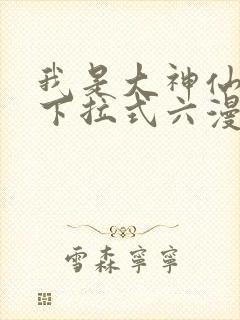 我是大神仙
下拉式六漫
雪森寧寧